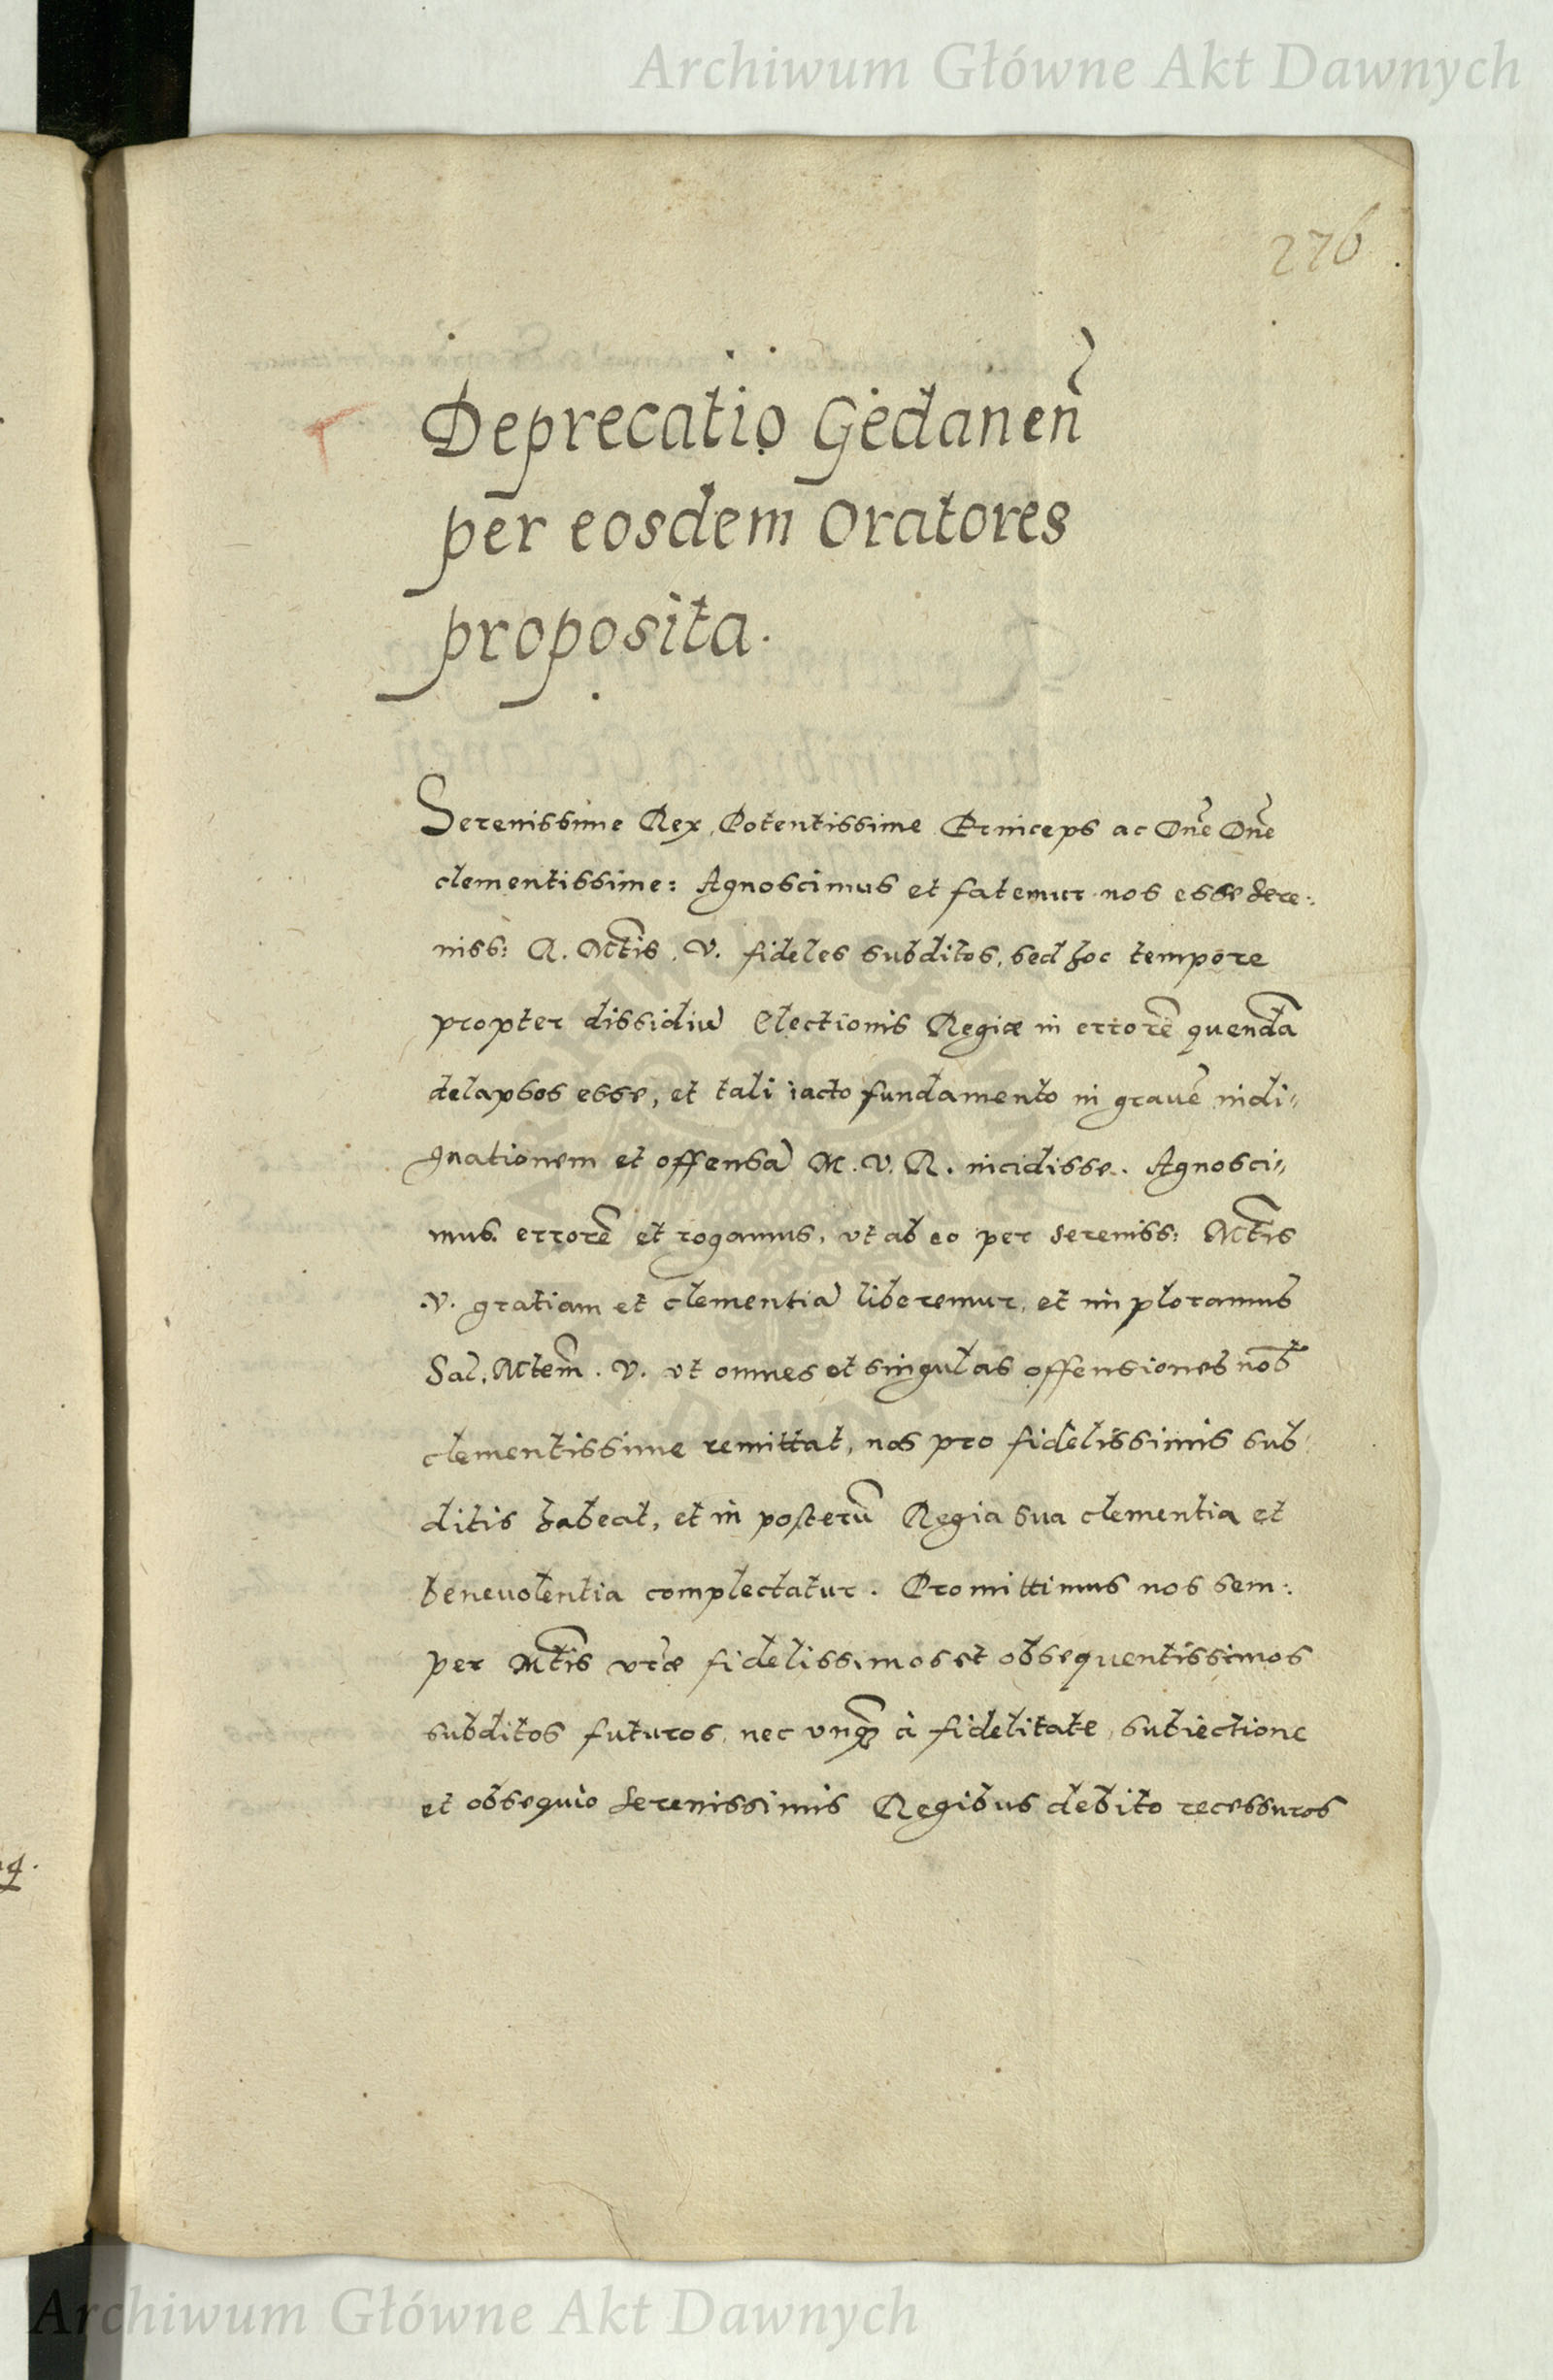 Archiwum Główne Akt Dawnych
276
Deprecatio Gedanen̄
per eosdem Oratores
proposita.
Serenissime Rex, Potentissime Princeps ac Dn̄e Dn̄e
clementissime: Agnoscimus et fatemur nos esse Sere:
niss: R. Mt̄is. V. fideles subditos, sed hoc tempore
propter dissidiū Electionis Regiæ in errorē quendā
delapsos esse, et tali iacto fundamento in grauē indi-
gnationem et offensā M. V. R. incidisse. Agnosci-
mus errorē et rogamus, vt ab eo per sereniss: Mt̄is
V. gratiam et clementiā liberemur, et imploramus
Sac. Mtem̄. V. vt omnes et singulas offensiones nob̄
clementissime remittat, nos pro fidelissimis sub
ditis habeat, et in posterū Regia sua clementia et
beneuolentia complectatur. Promittimus nos sem:
per Mt̄is vr̄æ fidelissimos et obsequentissimos
subditos futuros, nec vnq̄ à fidelitate, subiectione
et obsequio Serenissimis Regibus debito recessuros
Archiwum Główne Akt Dawnych